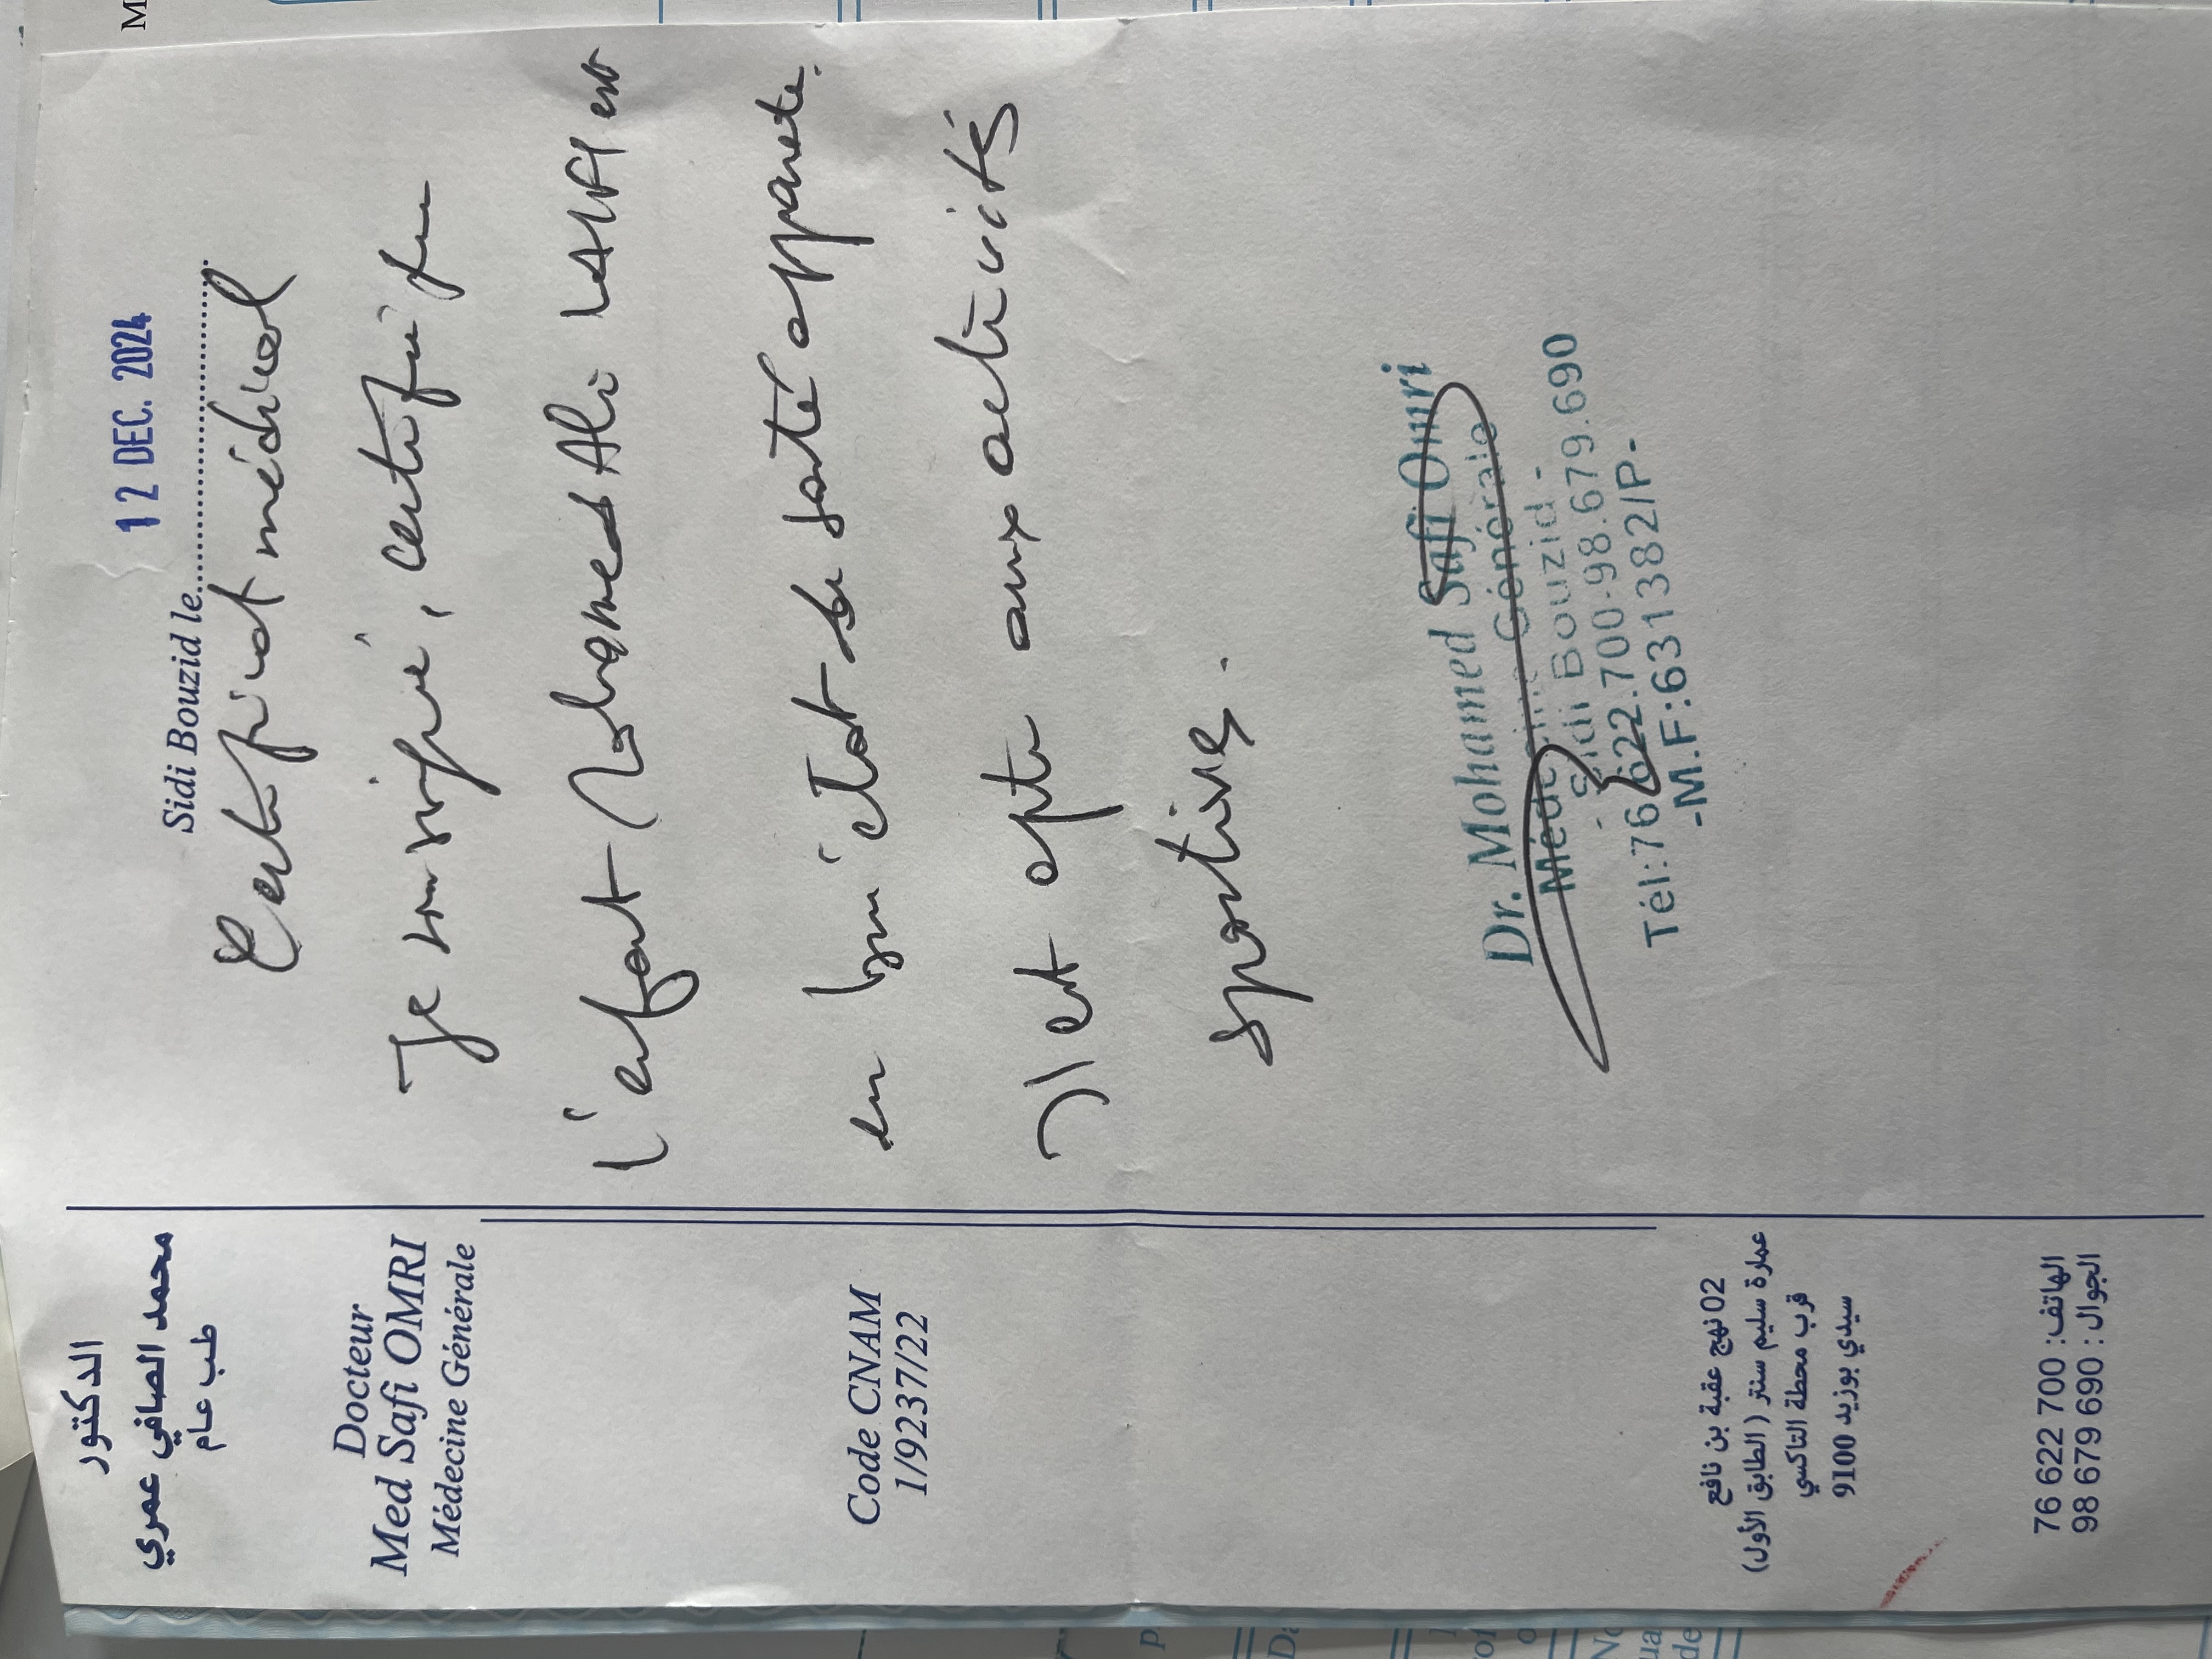 الدكتور
محمد الصافي عمري
طب عام
Docteur
Med Safi OMRI
Médecine Générale
Code CNAM
1/9237/22
02 نهج عقبة بن نافع
عمارة سليم سنتر (الطابق الأول)
قرب محطة التاكسي
سيدي بوزيد 9100
الهاتف: 76 622 700
الجوال: 98 679 690
12 DEC. 2024
Sidi Bouzid le
Certificat médical
Je soussigné, certifie que
l'enfant Mohamed Ali LAIFI est
en bon état de santé apparente.
Il est apte aux activités
sportives.
Dr. Mohamed Safi Omri
Médecine Générale
- Sidi Bouzid -
Tél:76.622.700-98.679.690
-M.F:631382/P-